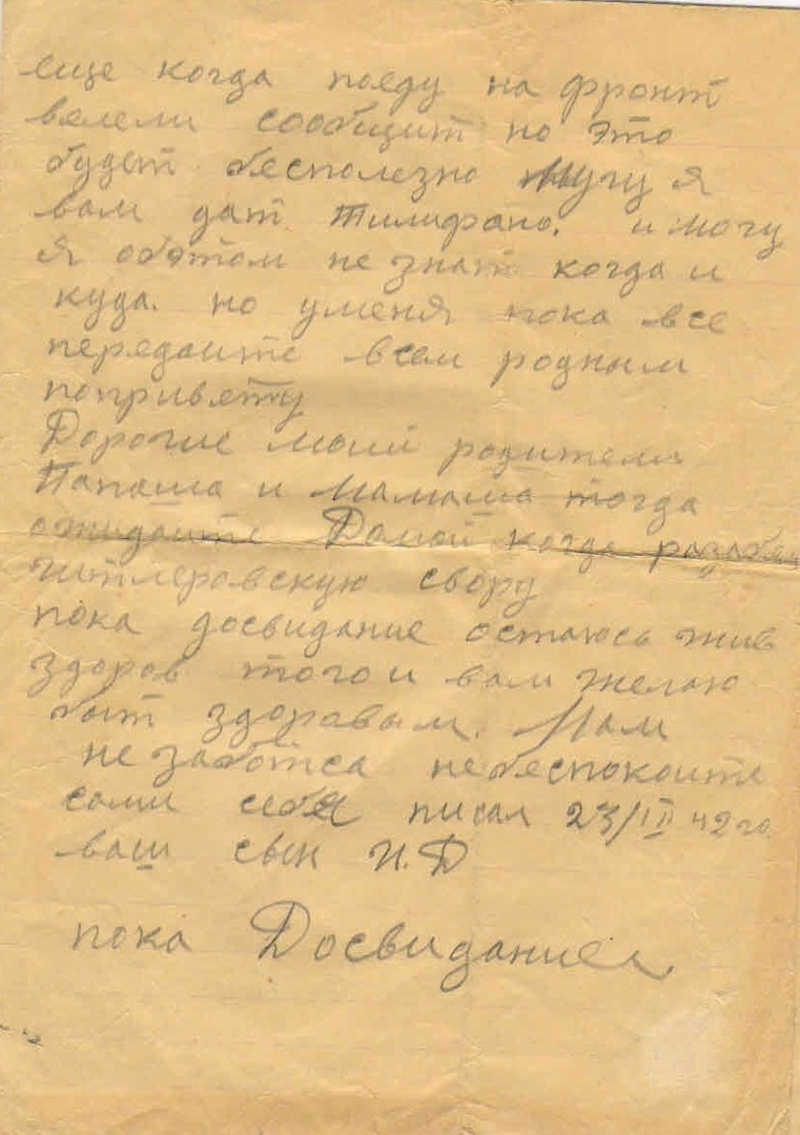 еще когда поеду на фронт
велели сообщит но это
будет бесполезно могу я
вам дат тилифано. и могу
я обэтом не знат когда и
куда. но уменя пока все
передаите всем родным
поприветту
Дорогие моии родители
Папаша и Мамаша тогда
ожидаите Домой когда
гитлеровскую свору
пока досвидание остаюсь жив
здоров того и вам желаю
быт здоровым. Мам
не заботса небеспокоите
сами себя писал 23/III 42 го.
ваш сын И.Д
пока Досвидание